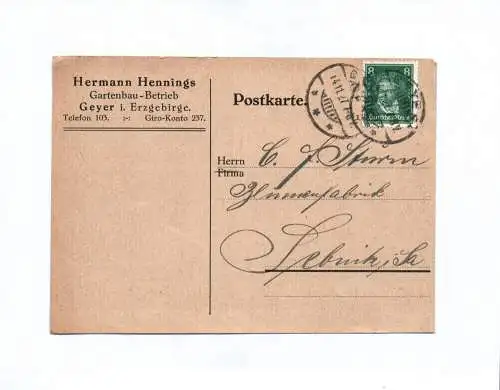 Hermann Hennings
Gartenbau-Betrieb
Geyer i. Erzgebirge.
Telefon 103. Giro-Konto 237.
Postkarte.
8 8
Deutsches Reich
Herrn
Firma
C. F. Sturm
Blumenfabrik
Sebnitz i/Sa